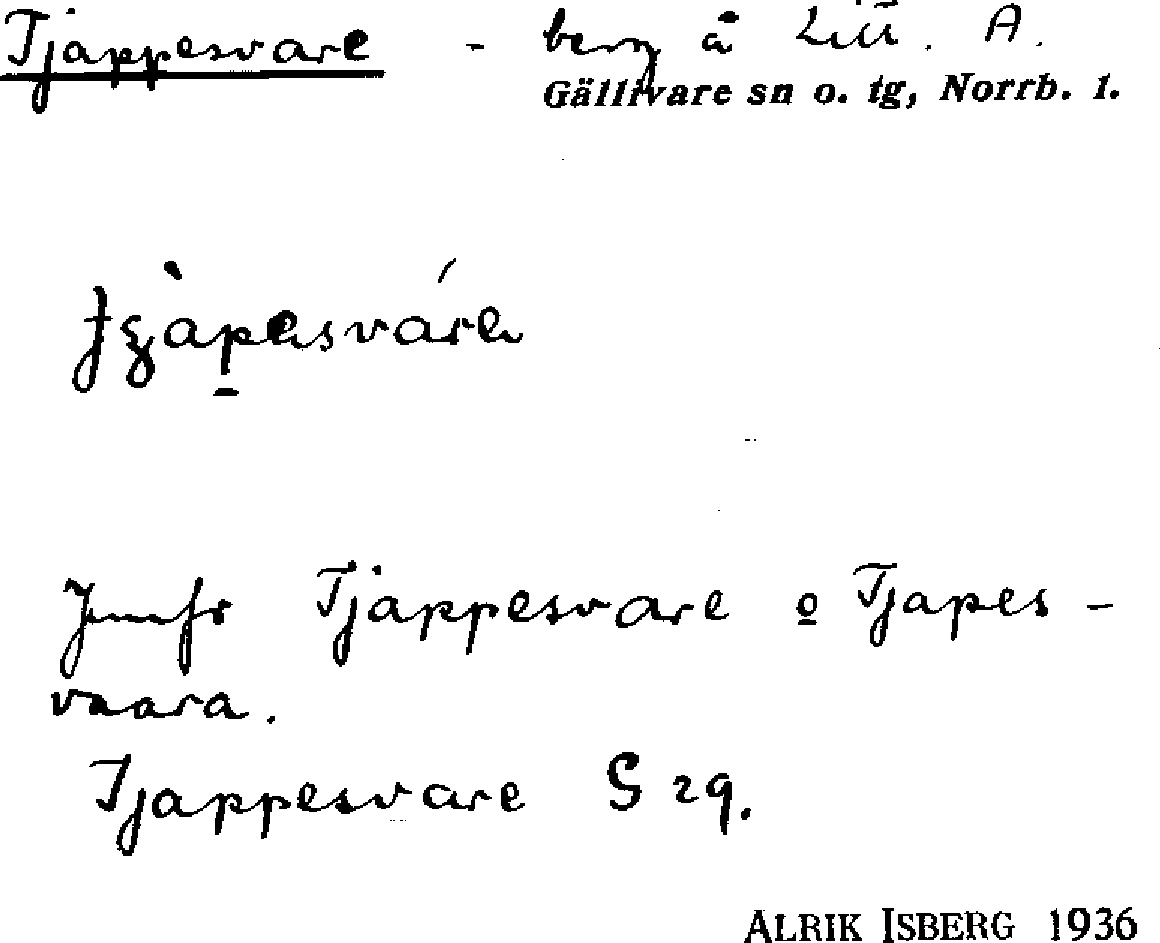 Tjappesvare - berg å Litt. A.
Gällivare sn o. tg, Norrb. 1.
Jmfr Tjappesvare o Tjapes-
vaara.
Tjappesvare S 29.
ALRIK ISBERG 1936